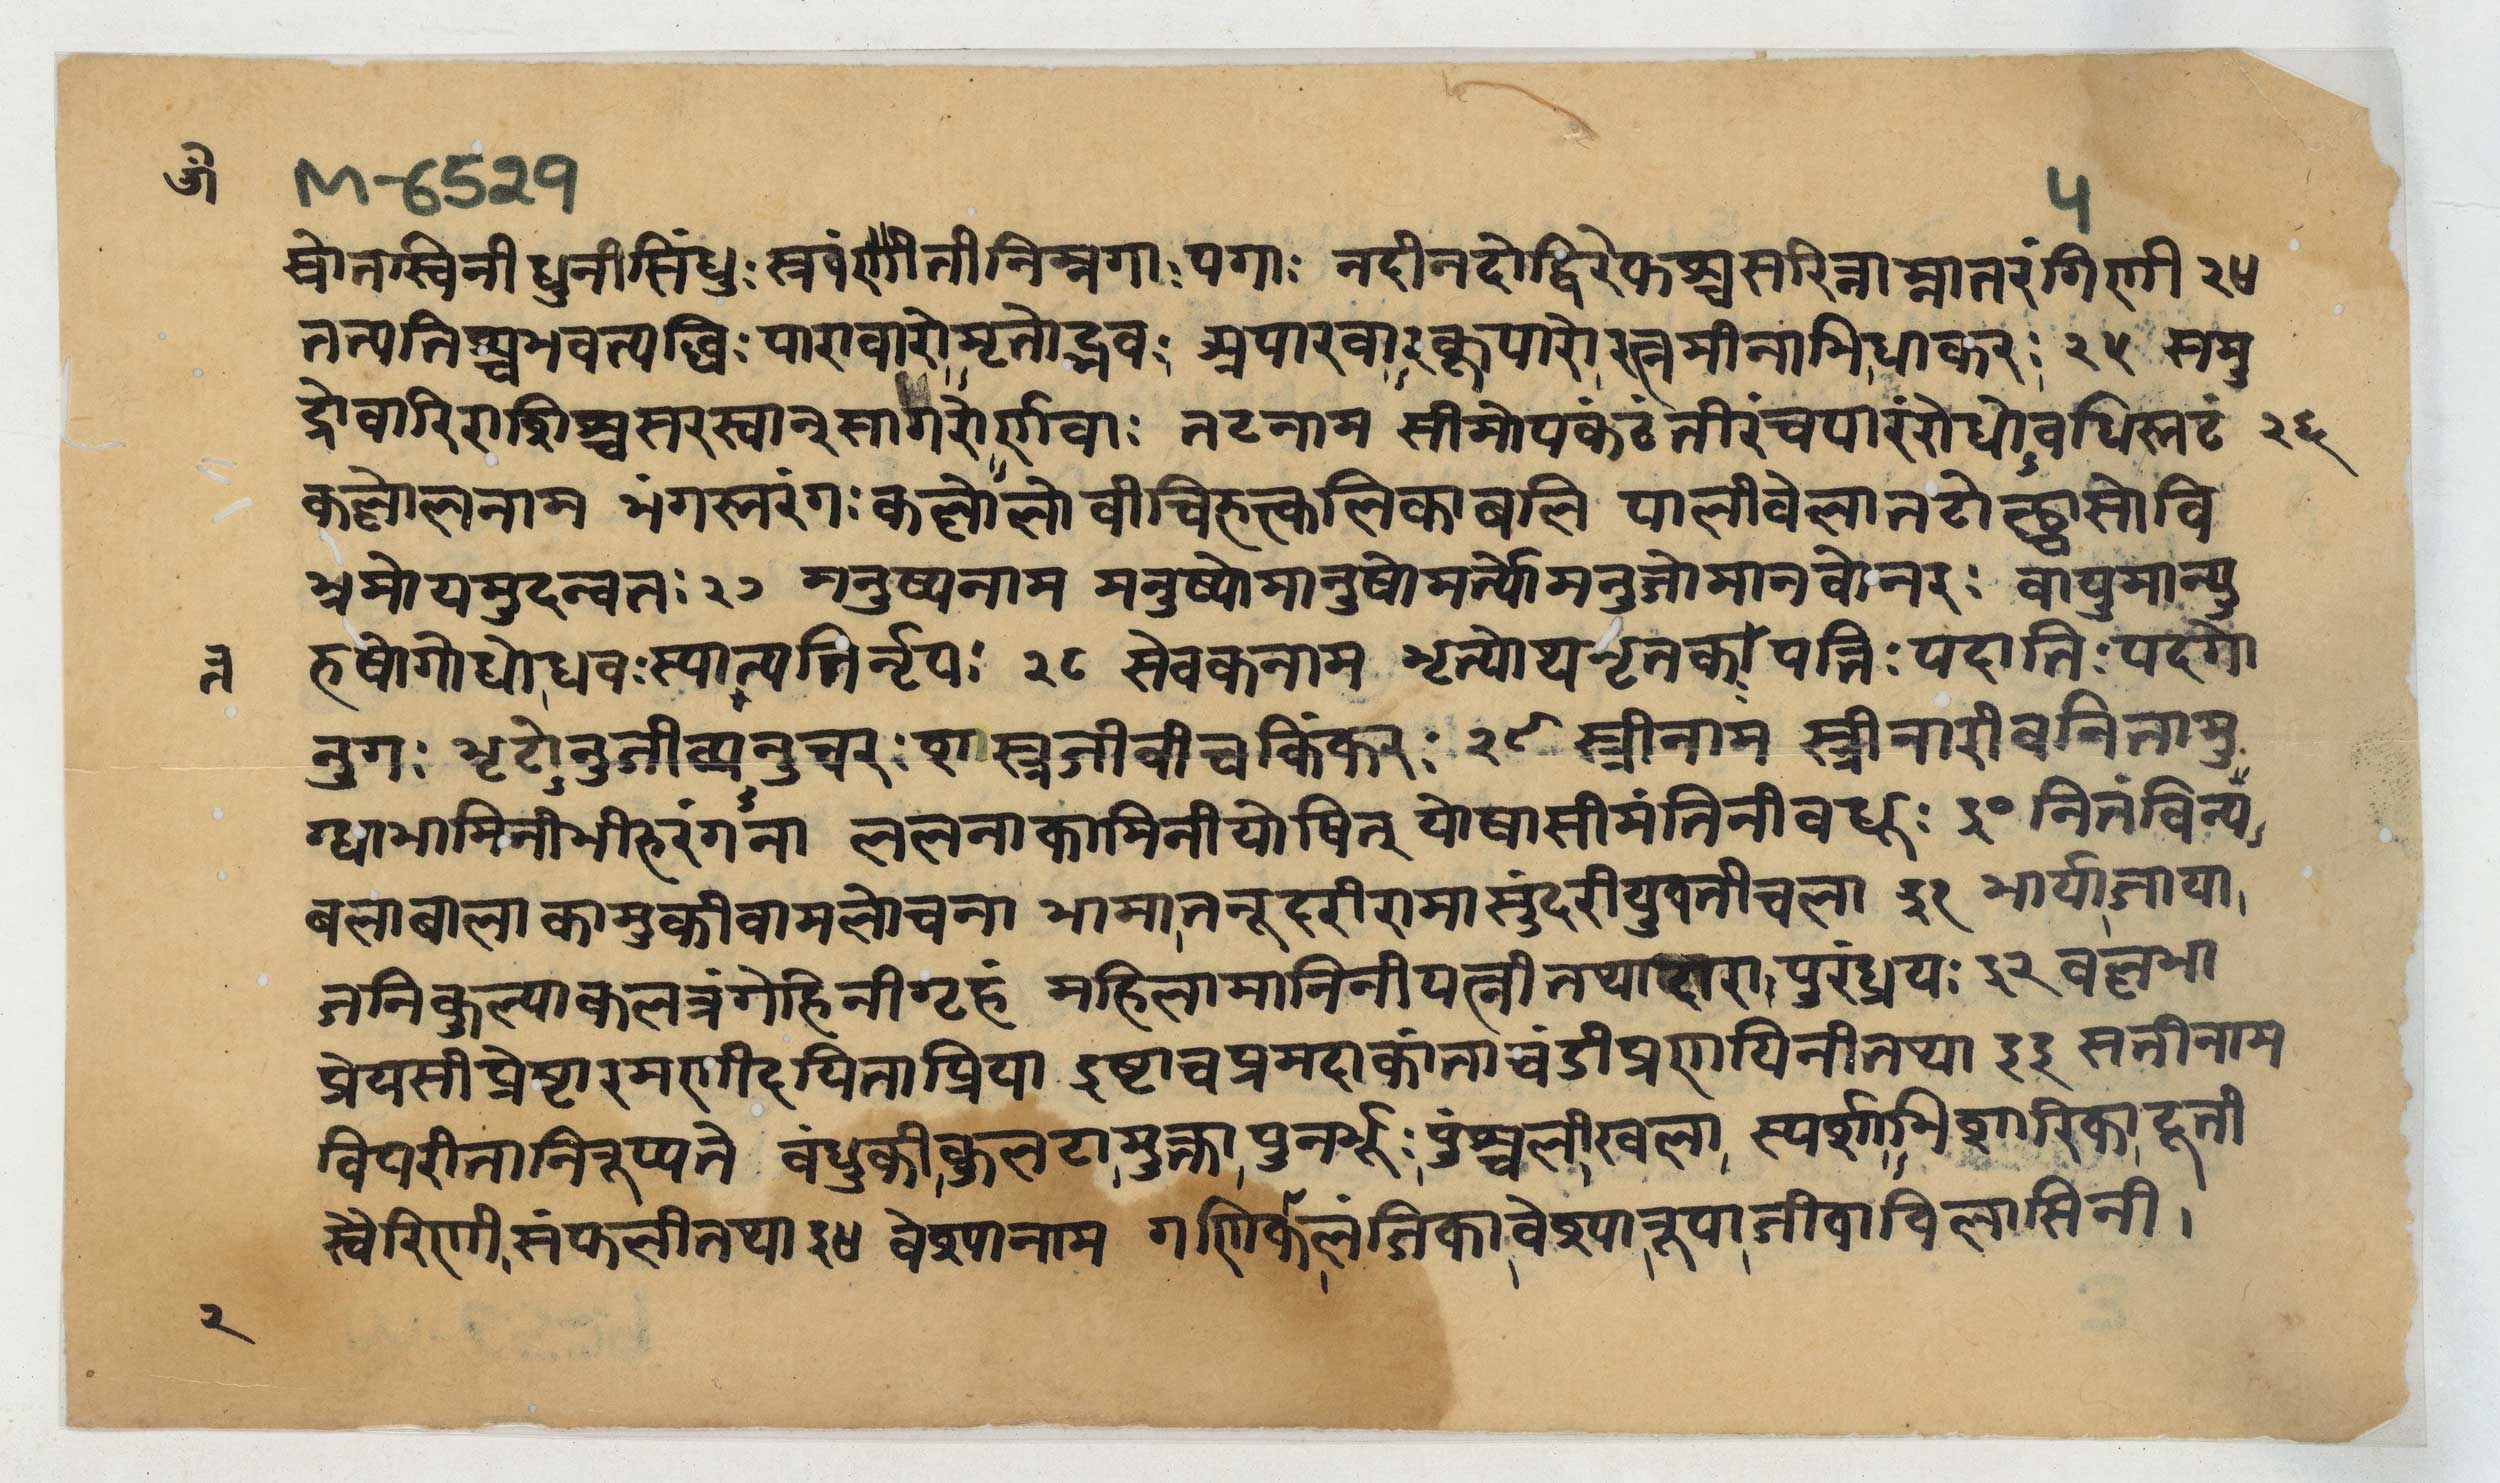 ॐ M-6529 4
स्रोतस्विनीधुनीसिंधुः स्रवंणीतीनिम्नगाःपगाः नदीनदोद्विरेफश्चसरिन्नाम्नातरंगिणी २४
तत्पतिश्चभवत्पब्धिः पारावारोमृतोद्भवः अपारवारकूपारोरत्नमीनाभिधाकरः २५ समु
द्रोवारिराशिश्चसरस्वान्सागरोर्णवाः तटनाम सीमोपकंठंतीरंचपारंरोधोवधिस्तटं २६
कल्लोलनाम भंगस्तरंगःकल्लोलोवीचिरुत्कलिकाबलि पालीवेलातटोत्छ्वासोवि
भ्रमोयमुदन्वतः २७ मनुष्यनाम मनुष्योमानुषोमर्त्योमनुजोमानवोनरः वायुमान्पु
त रुषोगोधोधवःस्यात्पतिर्नृपः २८ सेवकनाम भृत्योथभृतकःपत्तिःपदातिःपदगो
नुगः भृटोनुजीव्यनुचरःशास्त्रजीवीचकिंकरः २९ स्त्रीनाम स्त्रीनारीवनितामु
ग्धाभामिनीभीरुरंगना ललनाकामिनीयोषित् योषासीमंतिनीवधूः ३० नितंविन्य
बलाबालाकामुकीवामलोचना भामातनूदरीरामासुंदरीयुवतीचला ३१ भार्याजाया
जनिकुल्याकलत्रंगेहिनीगृहं महिलामानिनीपत्नीतथादारापुरंध्रयः ३२ वल्लभा
प्रेयसीप्रेष्टारमणीदयिताप्रिया इष्टाचप्रमदाकांताचंडीप्रणयिनीतथा ३३ सतीनाम
विपरीतानिरूप्यते बंधुकीकुलटामुक्तापुनर्भूःपुंश्चलीखला स्पर्शाभिशारिकादूती
स्वैरिणीसंफलीतथा ३४ वेश्यानाम गणिकालंजिकावेश्यारूपाजीवाविलासिनी।
२